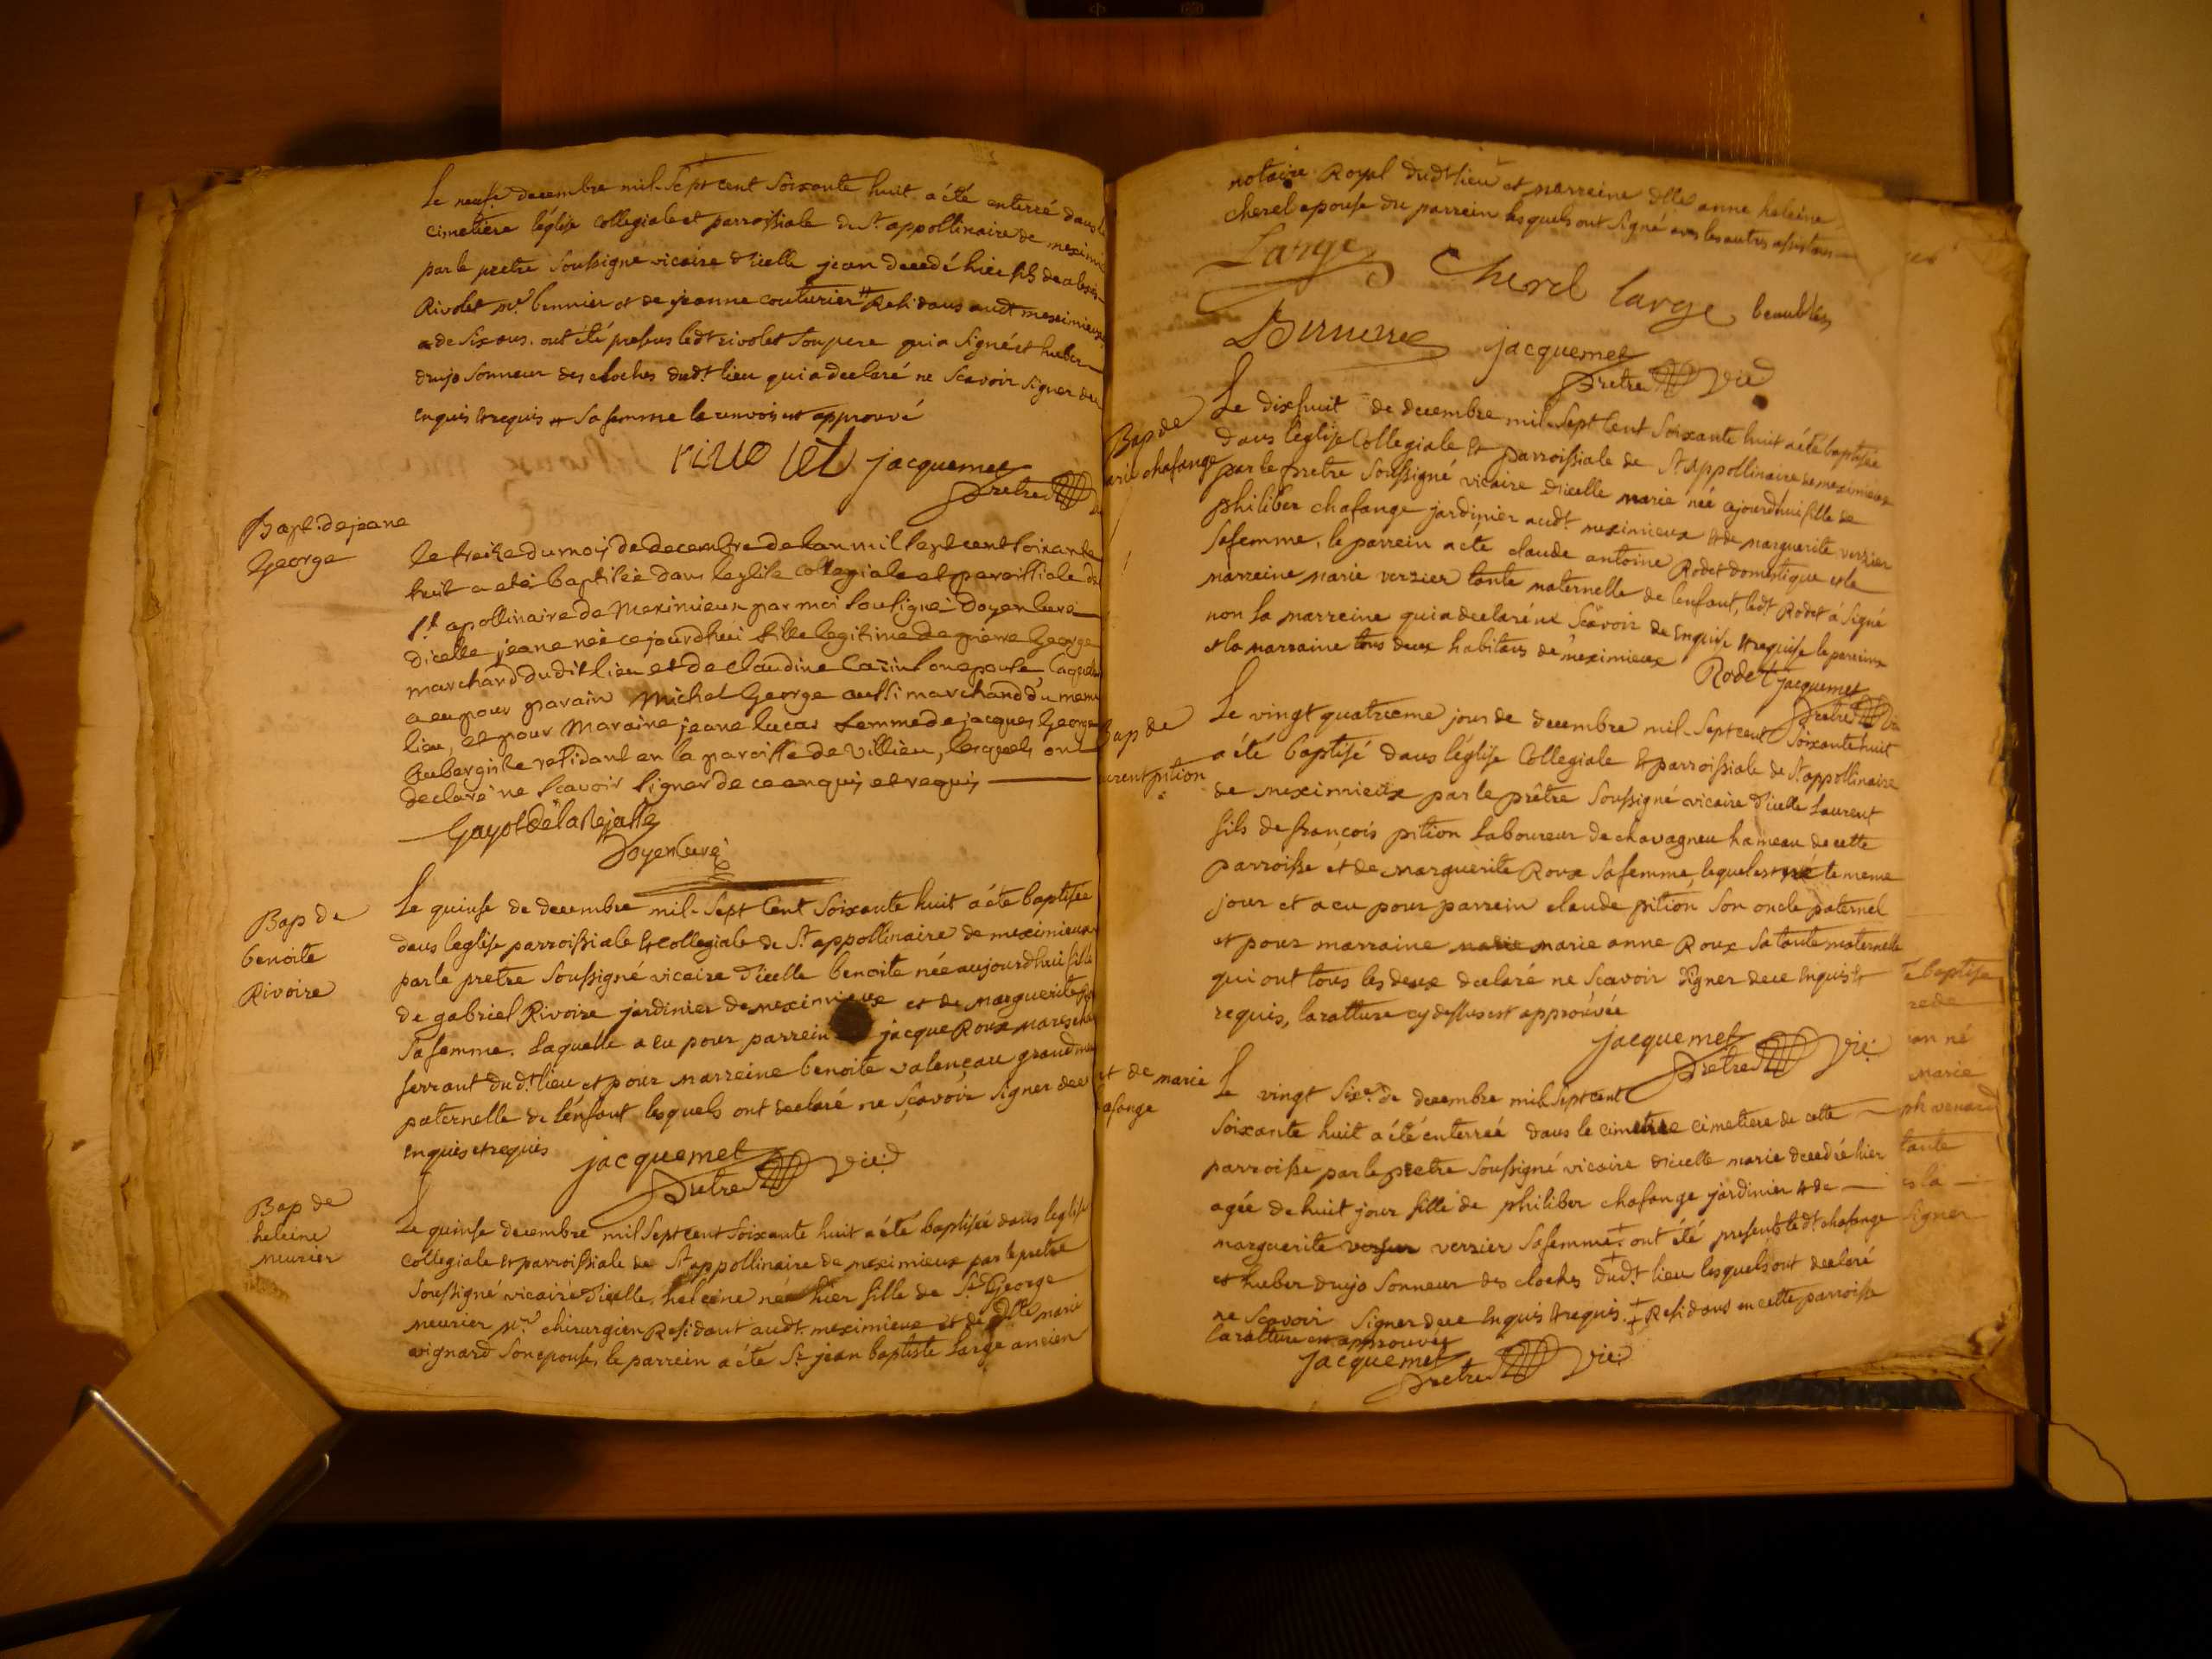 Le neufe decembre mil-Sept cent Soixante huit a été enterré dans le
cimetiere léglise Collegiale et parroissiale de St appollinaire de meximi
par le pretre Soussigne vicaire d'icelle jean decedé hier fils de alexis
Rivolet me bennier et de jeanne couturier # Residans audt meximieux
de Six ans. ont été presens ledt rivolet Son pere qui a Signé et huber
drujo Sonneur des cloches dudt lieu qui a declaré ne Scavoir signer de
enquis et requis # Sa femme le renvoi est approuvé
rivolet jacquemet
pretre
Bapt. de jeane
George
le treize du mois de decembre de l'an mil sept cent soixante
huit a eté baptisée dans leglise collegiale et paroissiale de
St. apollinaire de Meximieux par moi sousigné Doyen curé
dicelle jeane née ce jourdhui fille legitime de pierre George
marchand dudit lieu et de claudine Carin son epouse, laquelle
a eu pour parain Michel George aussi marchand du meme
lieu, et pour Maraine jeane lucas femme de jacques George
Aubergiste residant en la paroisse de Villieu, lesquels on
declaré ne scavoir signer de ce enquis et requis
Gayot de la Rejasse
Doyen Curé
Bap de
benoite
Rivoire
Le quinse de decembre mil-Sept Cent Soixante huit a été baptisée
dans leglise parroissiale et Collegiale de St appollinaire de meximieux
par le pretre Soussigné vicaire d'icelle benoite née aujourdhui fille
de gabriel Rivoire jardinier de meximieux et de marguerite
Sa femme. Laquelle a eu pour parrein jacque Roux marescha
ferrant dudt lieu et pour marreine benoite valençau grand me
paternelle de l'enfant lesquels ont declaré ne Sçavoir signer de ce
enquis et requis jacquemet
pretre vic:
Bap de
heleine
meurier
Le quinse decembre mil Sept cent Soixante huit a été baptisée dans leglise
Collegiale et parroissiale de St appollinaire de meximieux par le pretre
Soussigné vicaire d'icelle, heleine née hier fille de Sr George
meurier me chirurgien Residant audt. meximieux et de dlle marie
avignard Son epouse, le parrein a été Sr jean baptiste Large ancien
notaire Royal dudt lieu et marreine dlle anne heleine
cherel epouse du parrein lesquels ont Signé avec les autres assistans
Large Cherel large
jacquemet
pretre vic
Bap de
arie chafange
Le dixhuit de decembre mil-Sept Cent Soixante huit a été baptisée
dans leglise Collegiale et parroissiale de St Appollinaire de meximieux
par le pretre Soussigné vicaire d'icelle marie née ajourdhui fille de
philiber chafange jardinier audt meximieux et de marguerite verzier
Sa femme, le parrein a été claude antoine Rodet domestique et la
marreine marie verzier tante maternelle de lenfant, ledt Rodet à Signé
non la marreine qui a declaré ne Scavoir de Enquise et requise le pareins
et la marraine tous deux habitans de meximieux Rodet jacquemet
pretre vic
Bap de
urent pition
Le vingt quatrieme jour de decembre mil-Sept cent Soixante huit
a été baptisé dans l'église Collegiale et parroissiale de St appollinaire
de meximieux par le prêtre Soussigné vicaire d'icelle Laurent
fils de françois pition Laboureur de chavagneu hameau de cette
parroisse et de marguerite Roux Sa femme, lequel est né le meme
jour et a eu pour parrein claude pition Son oncle paternel
et pour marraine marie marie anne Roux Sa tante maternelle
qui ont tous les deux declaré ne Scavoir Signer de ce Enquis et
requis, la ratture cy dessus est approuvée
jacquemet
pretre vic:
et de marie
afange
Le vingt Sixe. de decembre mil Sept cent
Soixante huit a été enterreé dans le cimetiere de cette
parroisse par le pretre Soussigné vicaire d'icelle marie decedée hier
agée de huit jour fille de philiber chafange jardinier et de
marguerite verzier Sa femme + ont été presents ledt chafange
et huber drujo Sonneur des cloches dudt lieu lesquels ont declaré
ne Scavoir Signer de ce Enquis et requis. + Residans en cette parroisse
la ratture est approuvée
jacquemet
pretre vic:
é baptisé
rede
an né
Marie
ph venard
tante
es la
signer